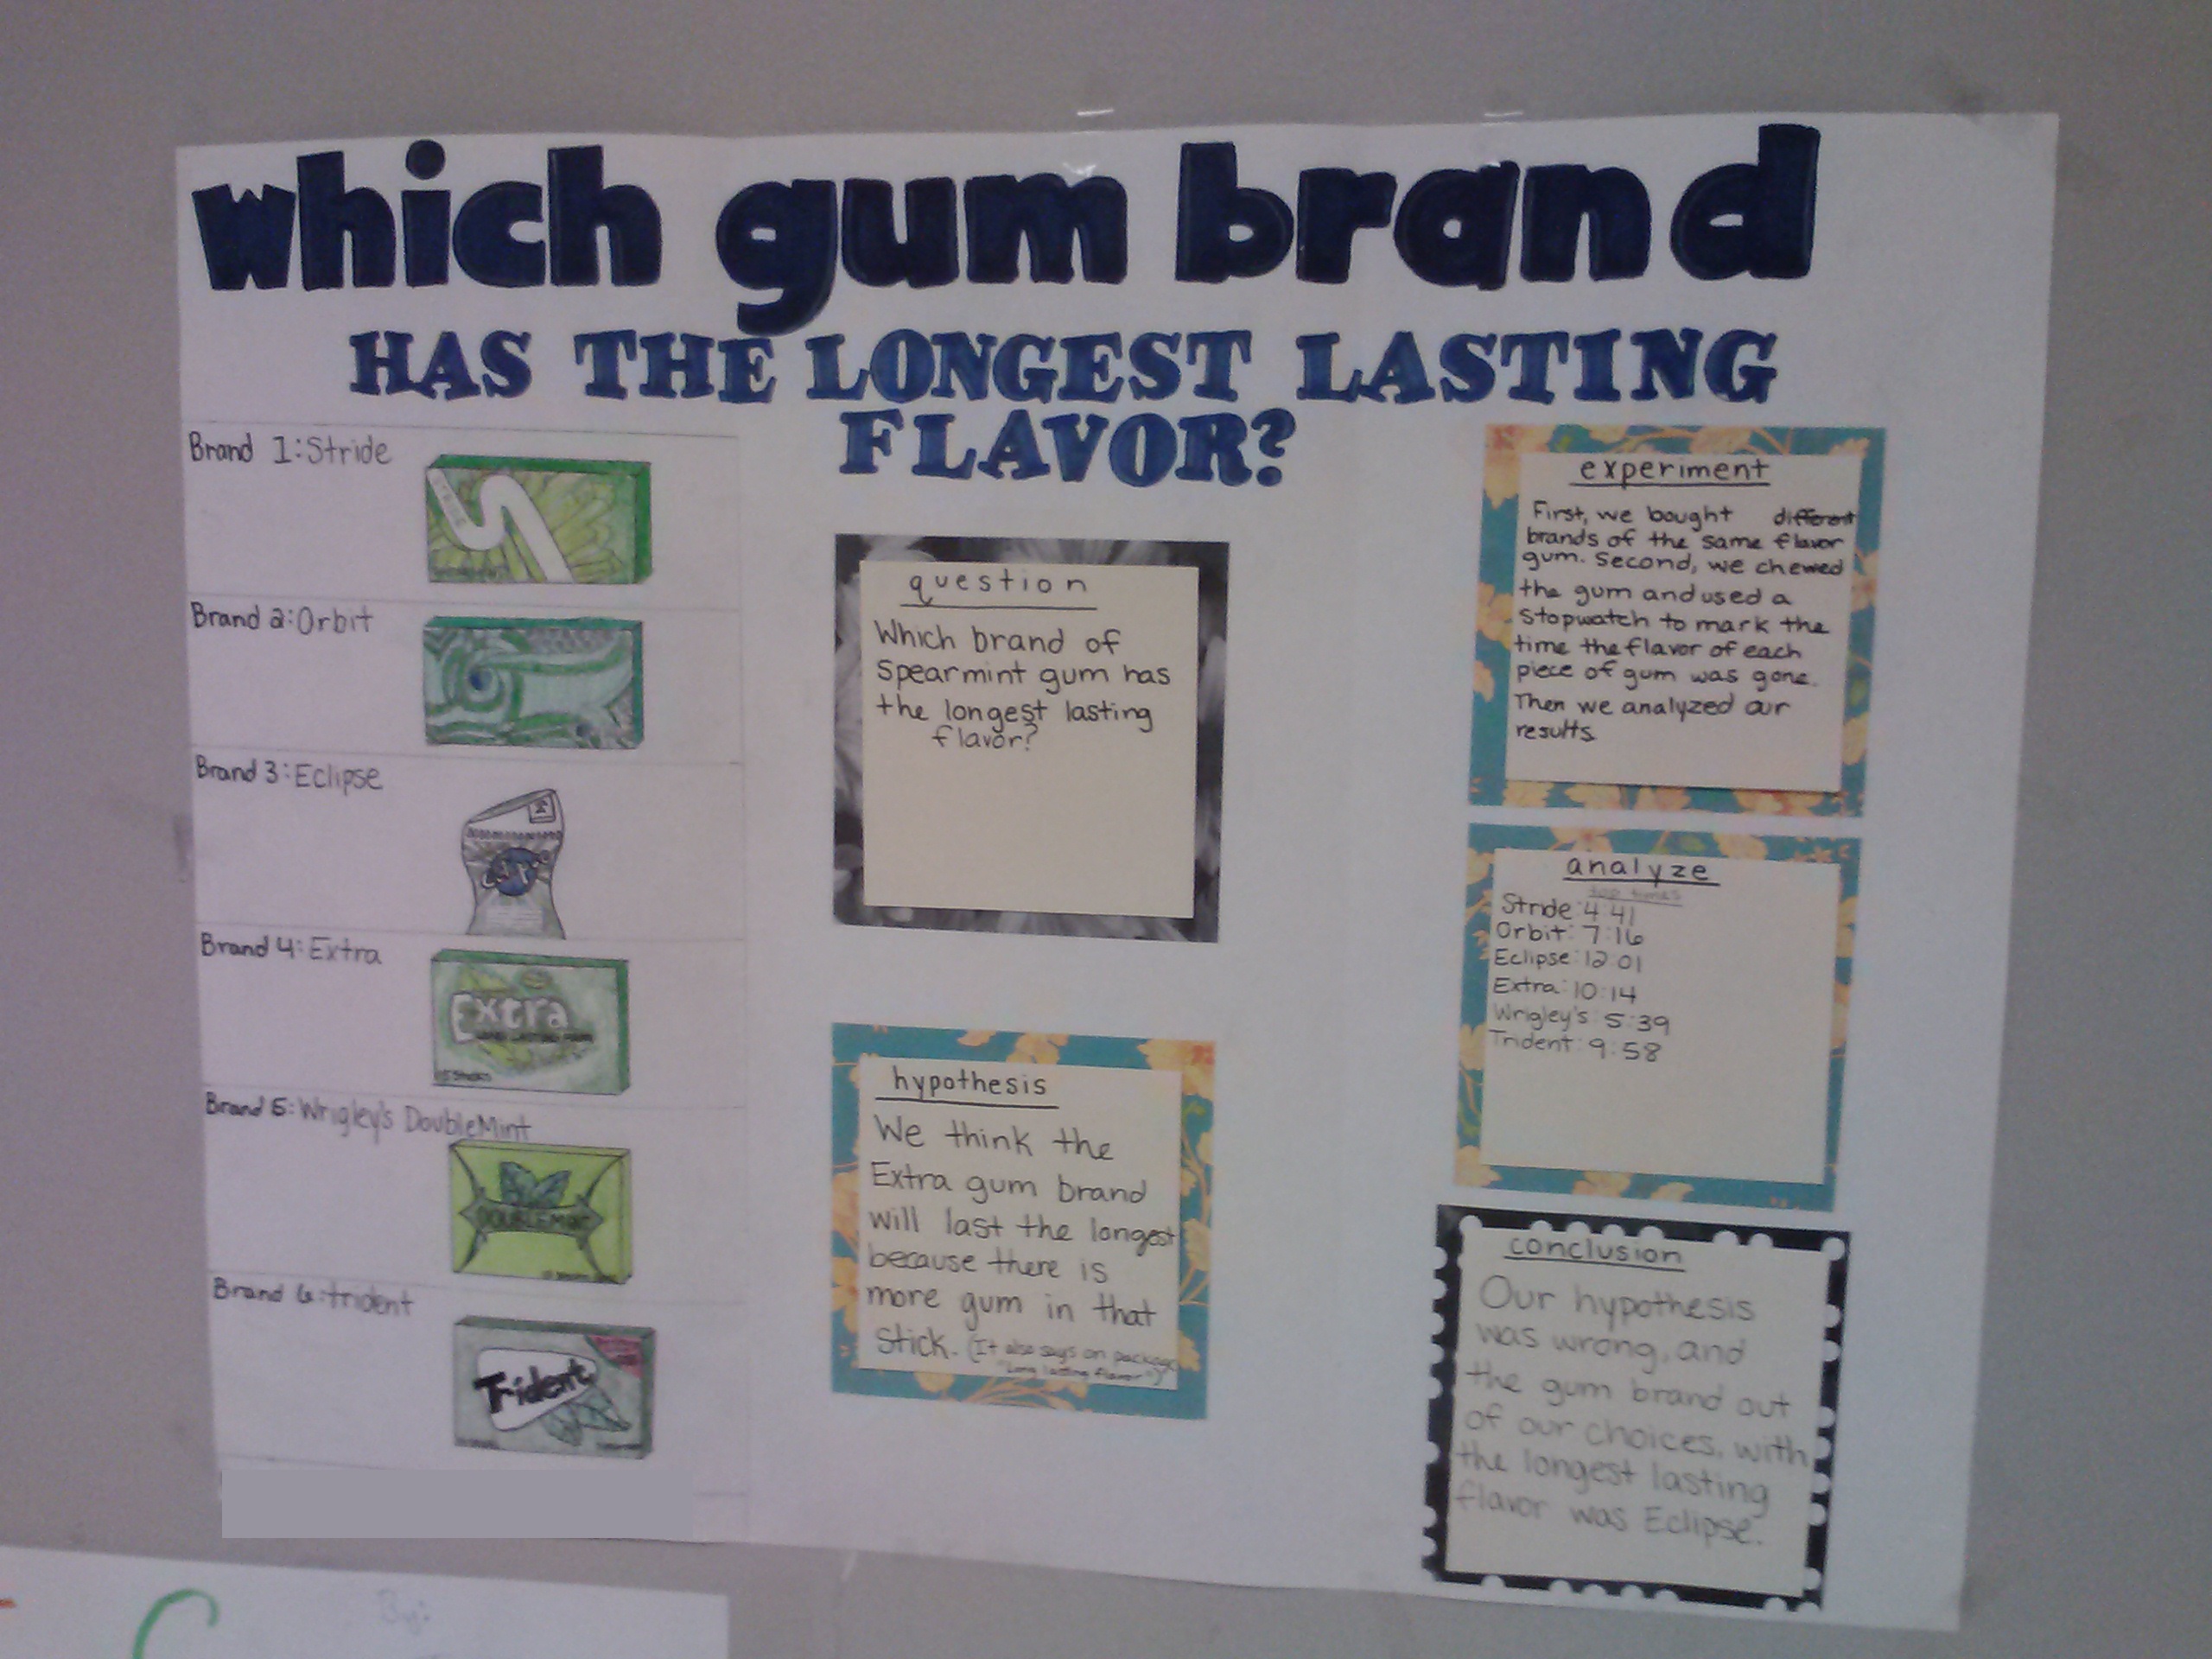 which gum brand
HAS THE LONGEST LASTING
FLAVOR?
Brand 1: Stride
Brand 2: Orbit
Brand 3: Eclipse
Brand 4: Extra
Extra
Brand 5: Wrigley's DoubleMint
DOUBLEMINT
Brand 6: trident
Trident
question
Which brand of
spearmint gum has
the longest lasting
flavor?
hypothesis
We think the
Extra gum brand
will last the longest
because there is
more gum in that
stick. (It also says on package
"Long lasting flavor")
experiment
First, we bought different
brands of the same flavor
gum. Second, we chewed
the gum and used a
stopwatch to mark the
time the flavor of each
piece of gum was gone.
Then we analyzed our
results.
analyze
Stride: 4:41
Orbit: 7:16
Eclipse: 12:01
Extra: 10:14
Wrigley's: 5:39
Trident: 9:58
conclusion
Our hypothesis
was wrong, and
the gum brand out
of our choices, with
the longest lasting
flavor was Eclipse.
By: